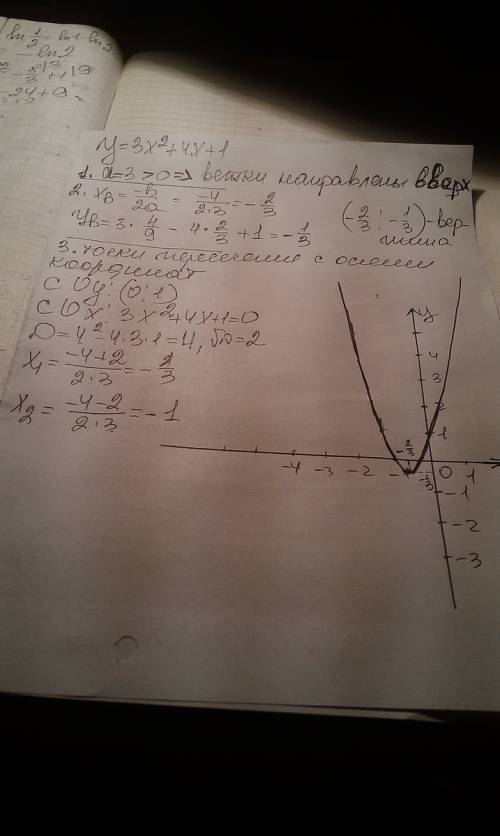 ln 1/2 = ln1-ln2
= -ln2
y=3x²+4x+1
1. a=3>0 => ветки направлены вверх
2. xв = -b/2a = -4/2·3 = -2/3
yв = 3·4/9 - 4·2/3 + 1 = -1/3
(-2/3; -1/3) - вершина
3. точки пересечения с осями
координат
С Oy: (0; 1)
С Ox: 3x²+4x+1=0
D=4²-4·3·1=4, √D=2
x₁ = -4+2/2·3 = -1/3
x₂ = -4-2/2·3 = -1
y
4
3
2
1
-2/3
-4 -3 -2 -1 -1/3 0 1
-1
-2
-3